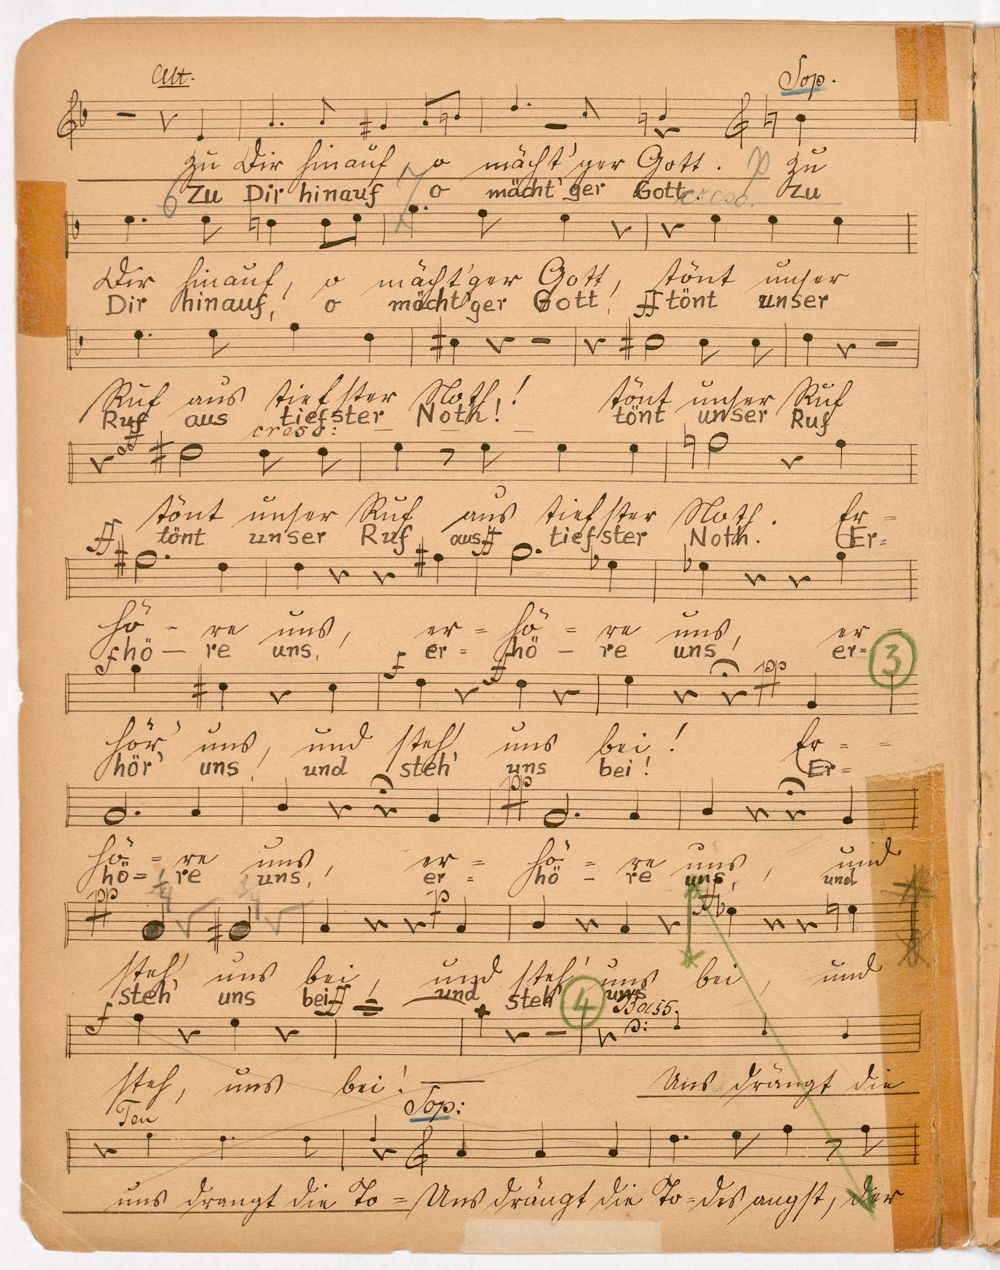 Alt. Sop.
zu Dir hinauf o mächt'ger Gott. p zu
6 Zu Dir hinauf 7 o mächt'ger Gott cresc. Zu
Dir hinauf, o mächt'ger Gott, tönt unser
Dir hinauf, o mächt'ger Gott! ff tönt unser
Ruf aus tiefster Noth! tönt unser Ruf
Ruf aus tiefster Noth! tönt unser Ruf
ff cresc: – –
tönt unser Ruf aus tiefster Noth. Er=
ff tönt unser Ruf aus ff tiefster Noth. Er=
hö – re uns, er = hö = re uns, er =
f hö – re uns, f er = ff hö – re uns, er= 3
pp
hör' uns, und steh' uns bei! Er= =
hör' uns! und steh' uns bei! Er=
pp
hö = re uns, er = hö = re uns, und
hö = re uns, er = hö – re uns, und
pp 3/4 3/4 p ff
steh' uns bei, und steh' uns bei, und
steh' uns bei ff und steh' 4 uns
f Bass.
steh, uns bei! Uns drängt die
Ten Sop:
uns drangt die To = Uns drängt die To=des angst, der